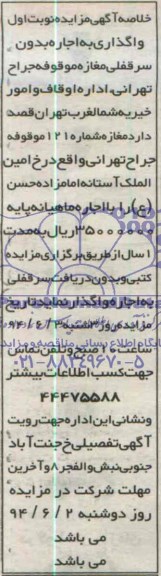 خلاصه آگهی مزایده نوبت اول
واگذاری به اجاره بدون
سرقفلی مغازه موقوفه جراح
تهرانی، اداره اوقاف وامور
خیریه شمالغرب تهران قصد
دارد مغازه شماره ۱۲۱ موقوفه
جراح تهرانی واقع در خ امین
الملک آستانه امامزاده حسن
(ع) را با اجاره ماهیانه پایه
ریال به مدت
۱ سال از طریق برگزاری مزایده
کتبی وبدون دریافت سرقفلی
به اجاره واگذار نماید تاریخ
مزایده روز ۳شنبه ۹۴/۶/۳
ساعت ۱۰ صبح وتلفن تماس
جهت کسب اطلاعات بیشتر
۴۴۴۷۵۵۸۸
ونشانی این اداره جهت رویت
آگهی تفصیلی خ جنت آباد
جنوبی نبش والفجر ۸ و آخرین
مهلت شرکت در مزایده
روز دوشنبه ۹۴/۶/۲
می باشد
می باشد
۰۲۱-۸۸۳۴۹۶۷۰-۵